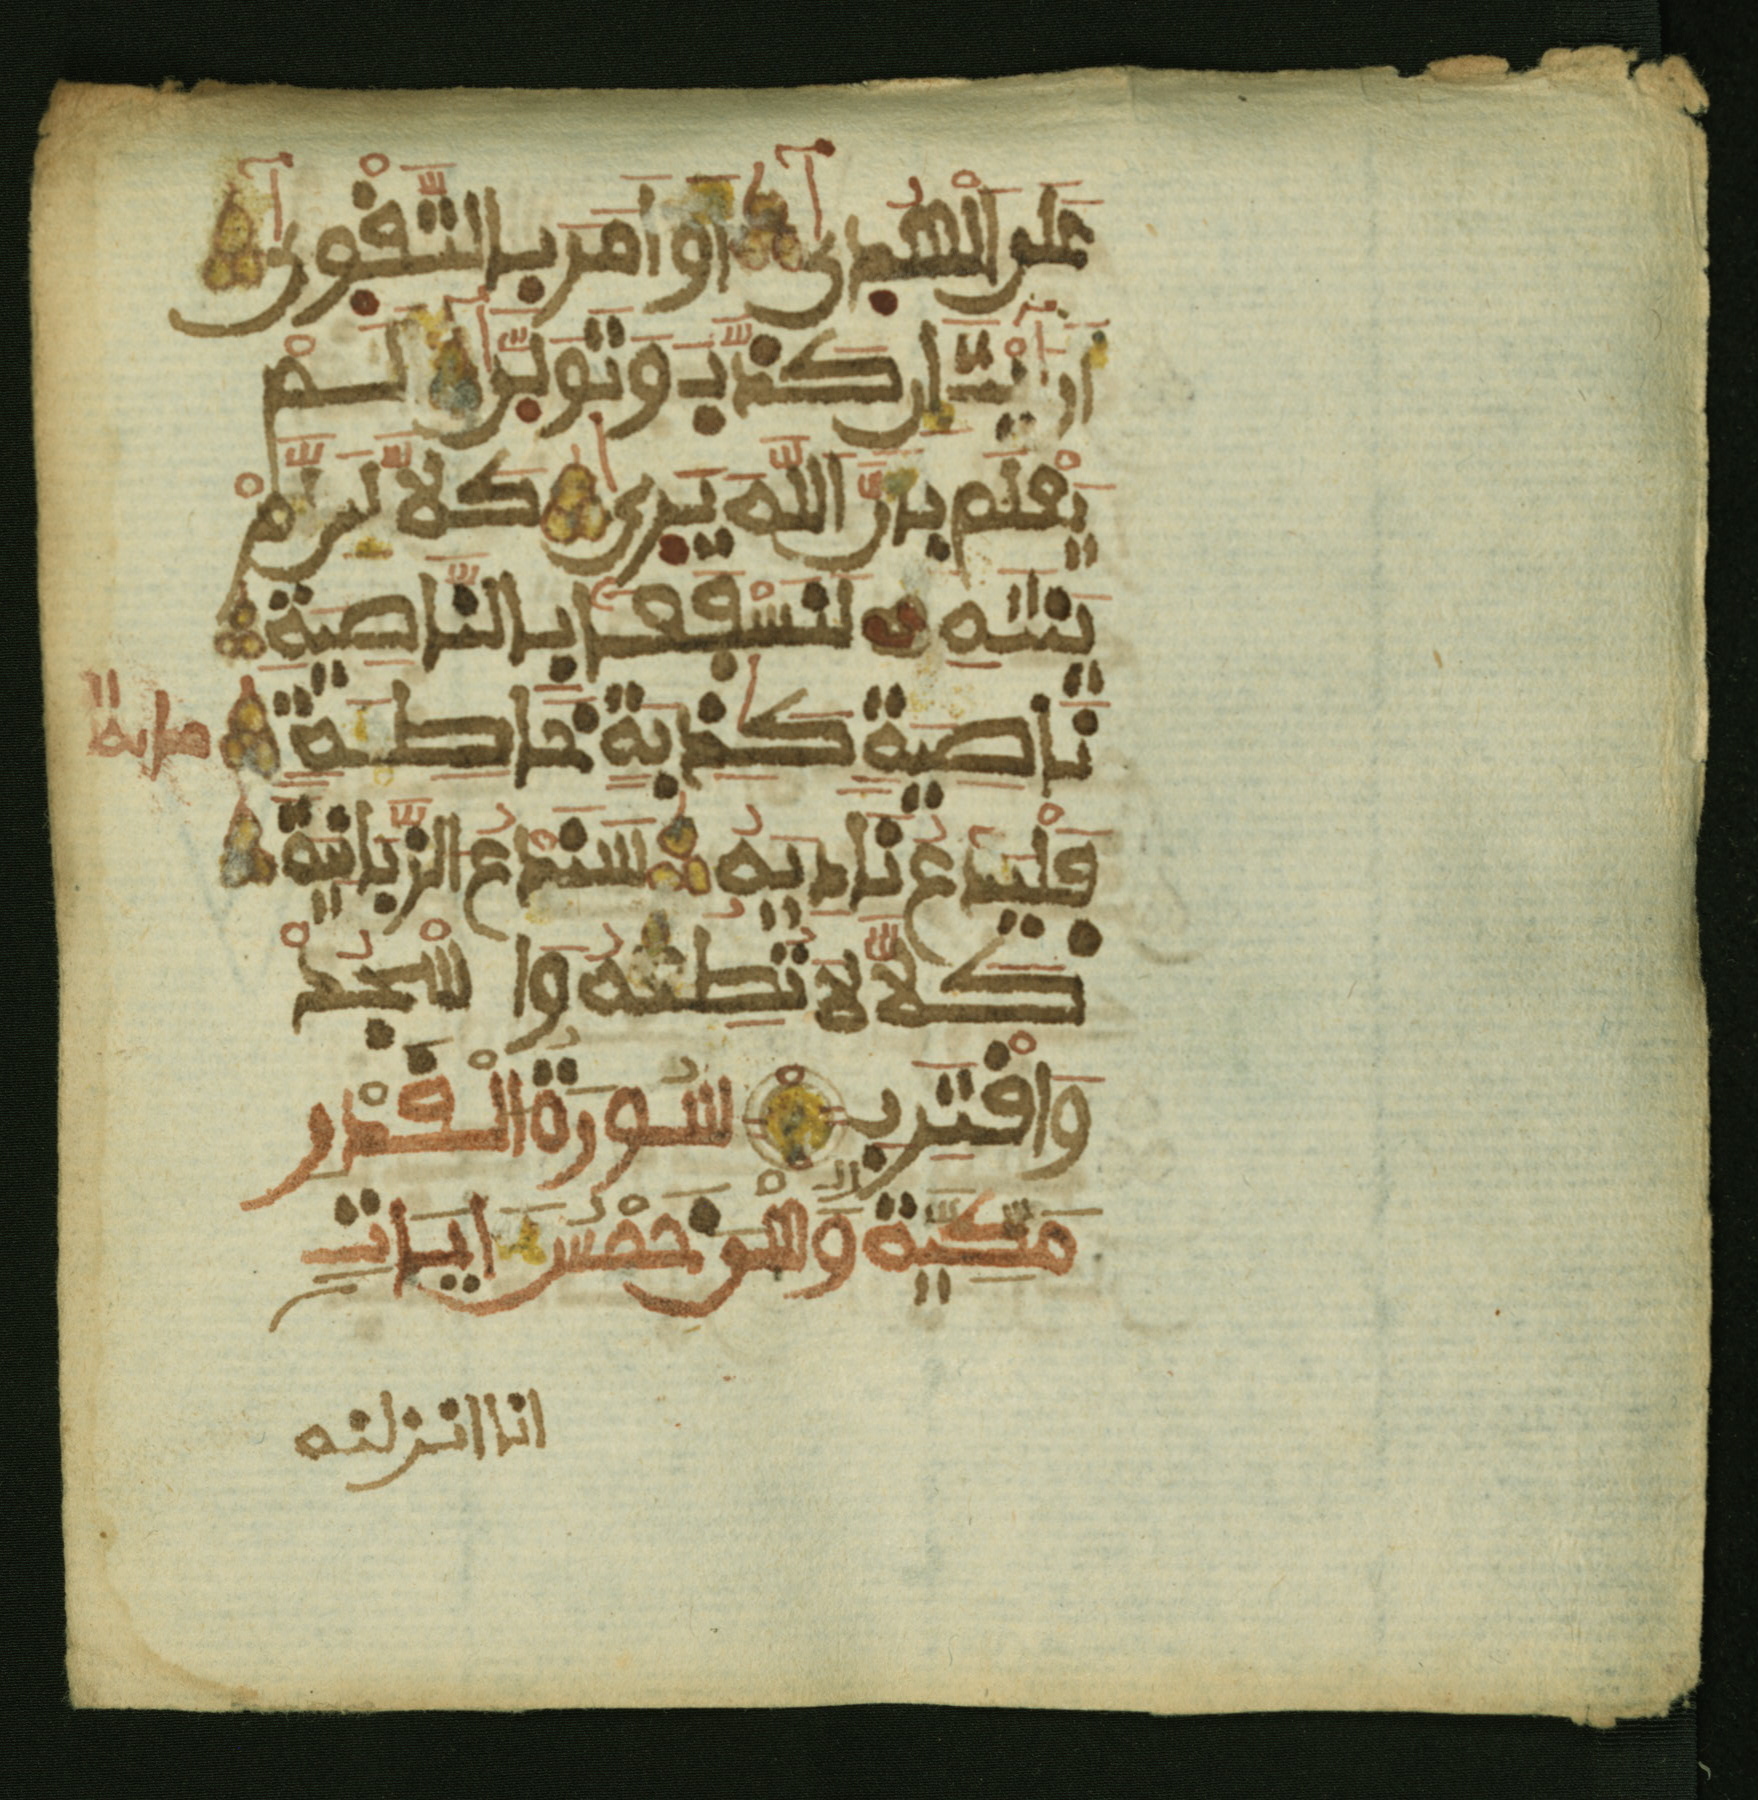 على الهدى او امر بالتقوى
اريت ان كذب وتولى الم
يعلم بان الله يرى كلا لين لم
ينته لنسفعا بالناصية
ناصية كذبة خاطية
فليدع ناديه سندع الزبانية
كلا لا تطعه واسجد
واقترب سورة القدر
مكية وهي خمس ايات
انا انزلنه